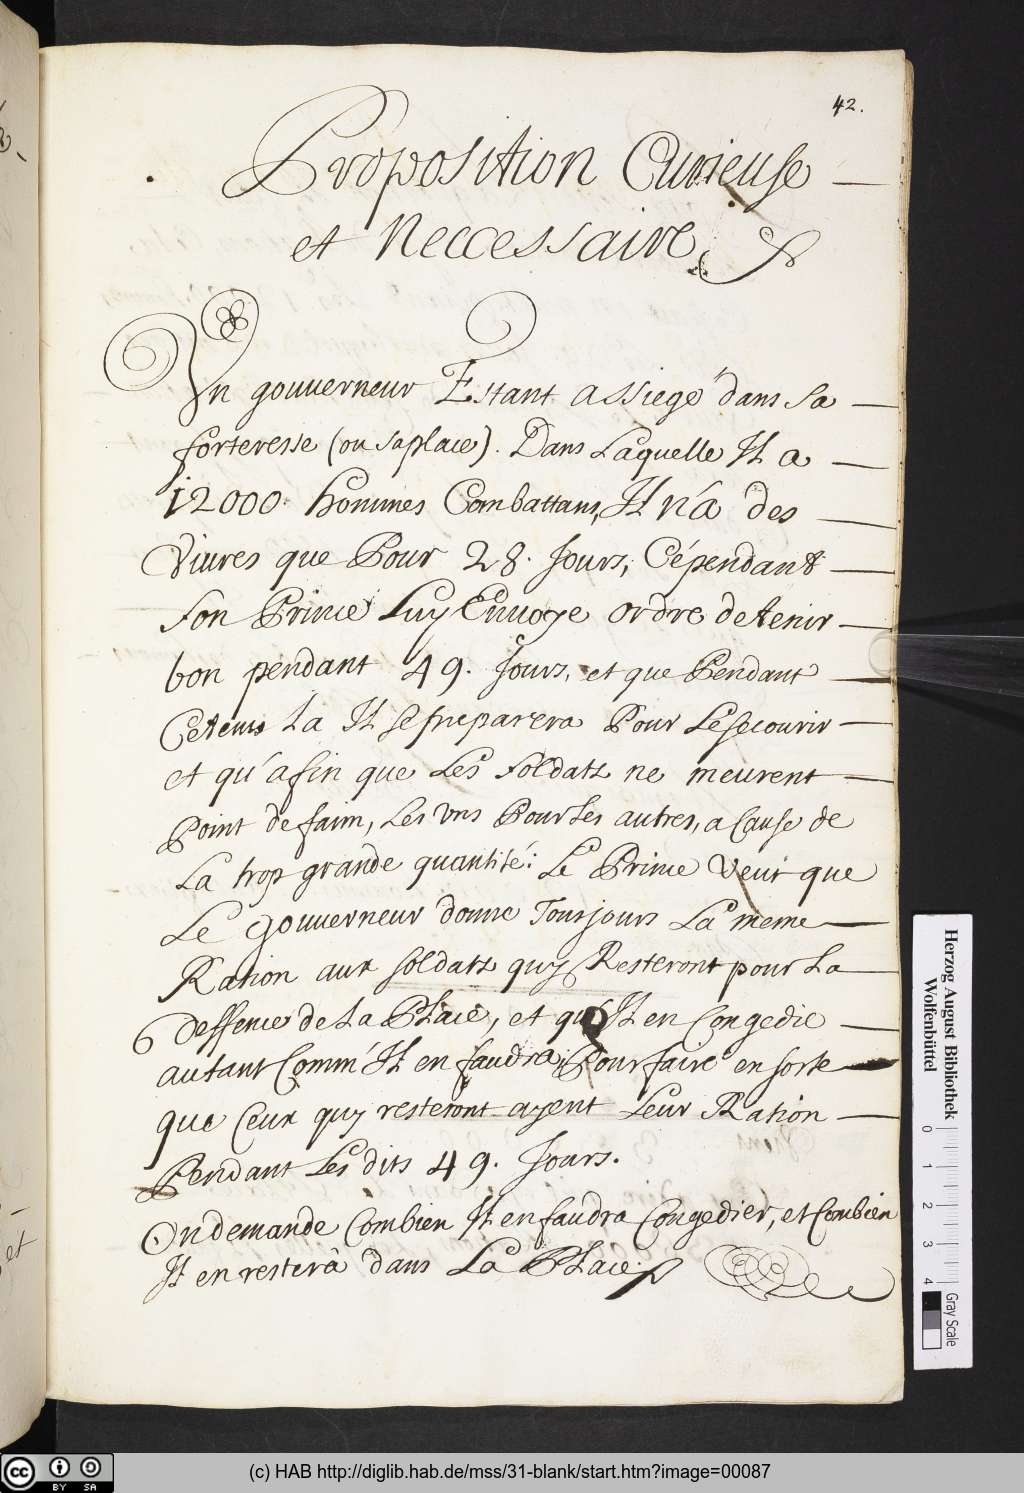 42.
Proposition Curieuse
et Neccessaire
Un gouuerneur Estant assiegé dans sa
forteresse (ou sa place). Dans Laquelle Il a
12000. hommes Combattans, Il n'a des
Viures que Pour 28. Jours, Cépendant
son Prince Luy Enuoye ordre de tenir
bon pendant 49. Jours, et que Pendant
Cetems La Il se preparera Pour Le secourir
et qu'afin que Les soldats ne meurent
Point de faim, Les Vns Pour Les autres, a Cause de
La trop grande quantité: Le Prince Veut que
Le gouuerneur donne Tousjours La meme
Ration aux soldats quy Resteront pour La
deffence de La Place, et qu'Il en Congedie
autant Comm' Il en faudra, Pour faire en sorte
que Ceux quy resteront ayent Leur Ration
Pendant Les dits 49. Jours.
On demande Combien Il en faudra Congedier, et Combien
Il en resterà dans La Place.
et
Herzog August Bibliothek
Wolfenbüttel
0 1 2 3 4
Gray Scale
cc BY SA
(c) HAB http://diglib.hab.de/mss/31-blank/start.htm?image=00087